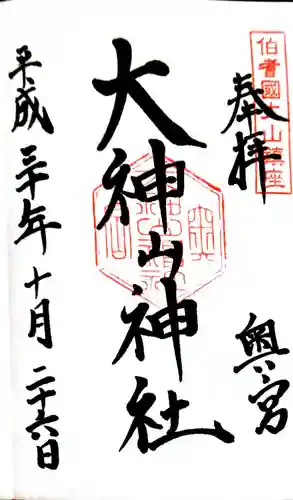 伯耆國大山鎮座
奉拝
奥宮
大神山神社
平成三十年十月二十六日